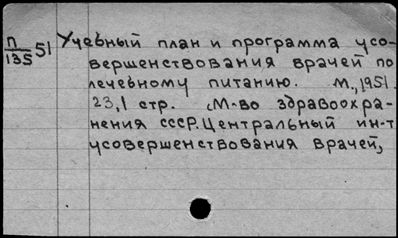 П/135 51 Учебный план и программа усо-
вершенствования врачей по
лечебному питанию. М., 1951.
23,1 стр. (М-во здравоохра-
нения СССР. Центральный ин-т
усовершенствования врачей,